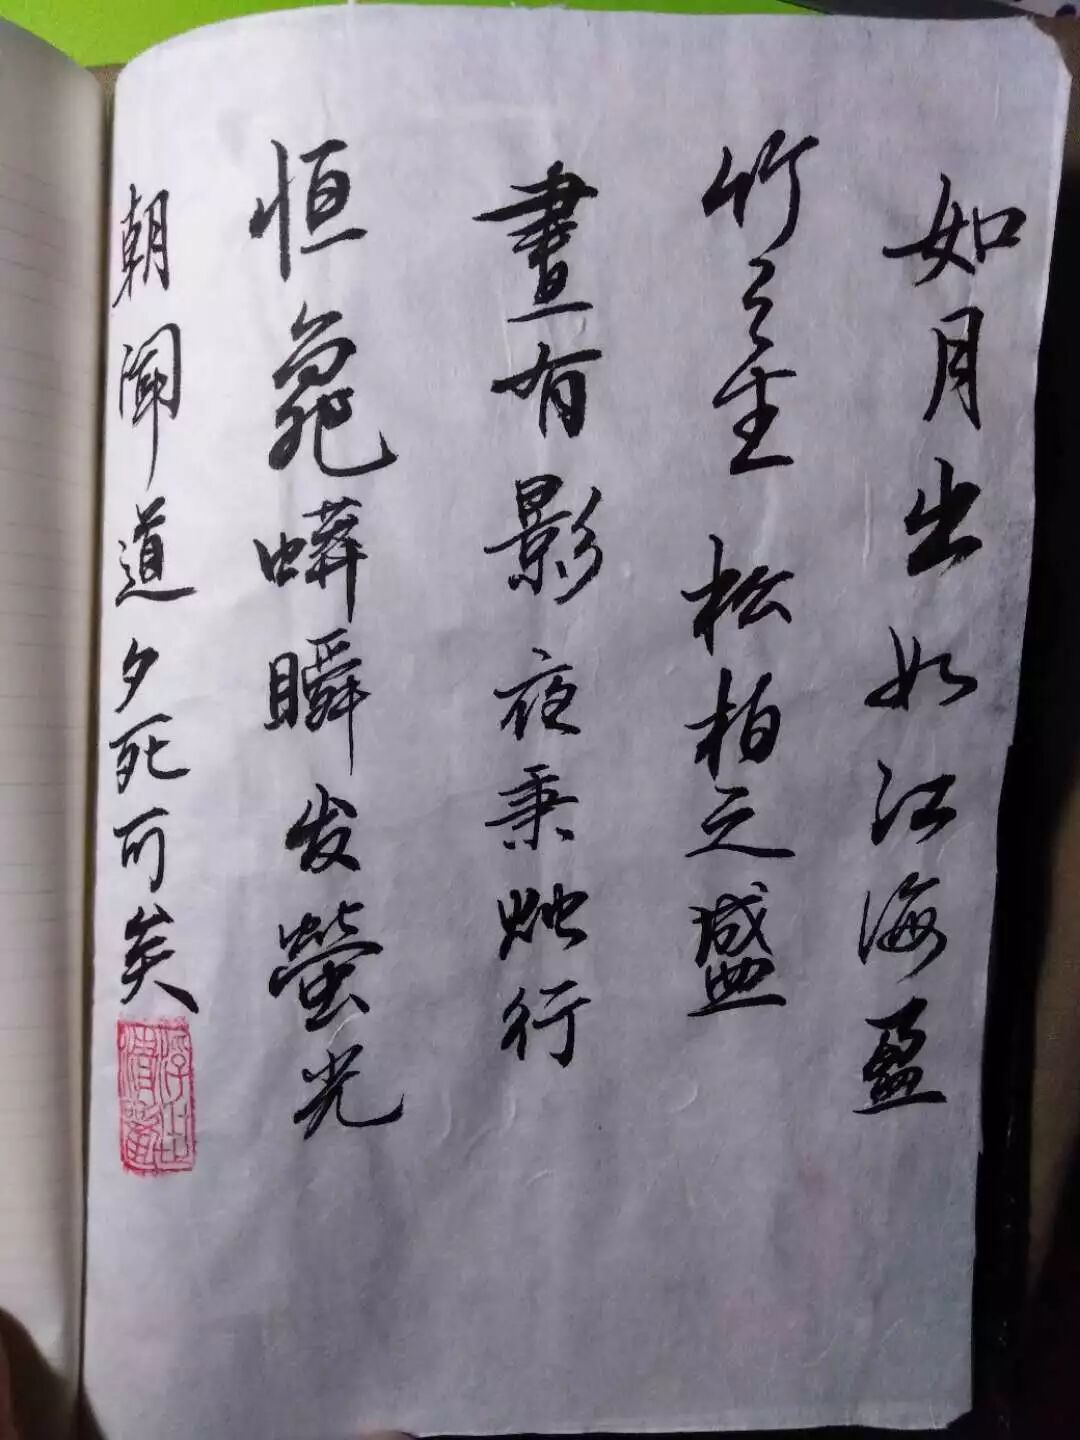 如月出如江海盈
竹之生 松柏之盛
晝有影夜秉烛行
恒蟒瞬发螢光
朝闻道夕死可矣